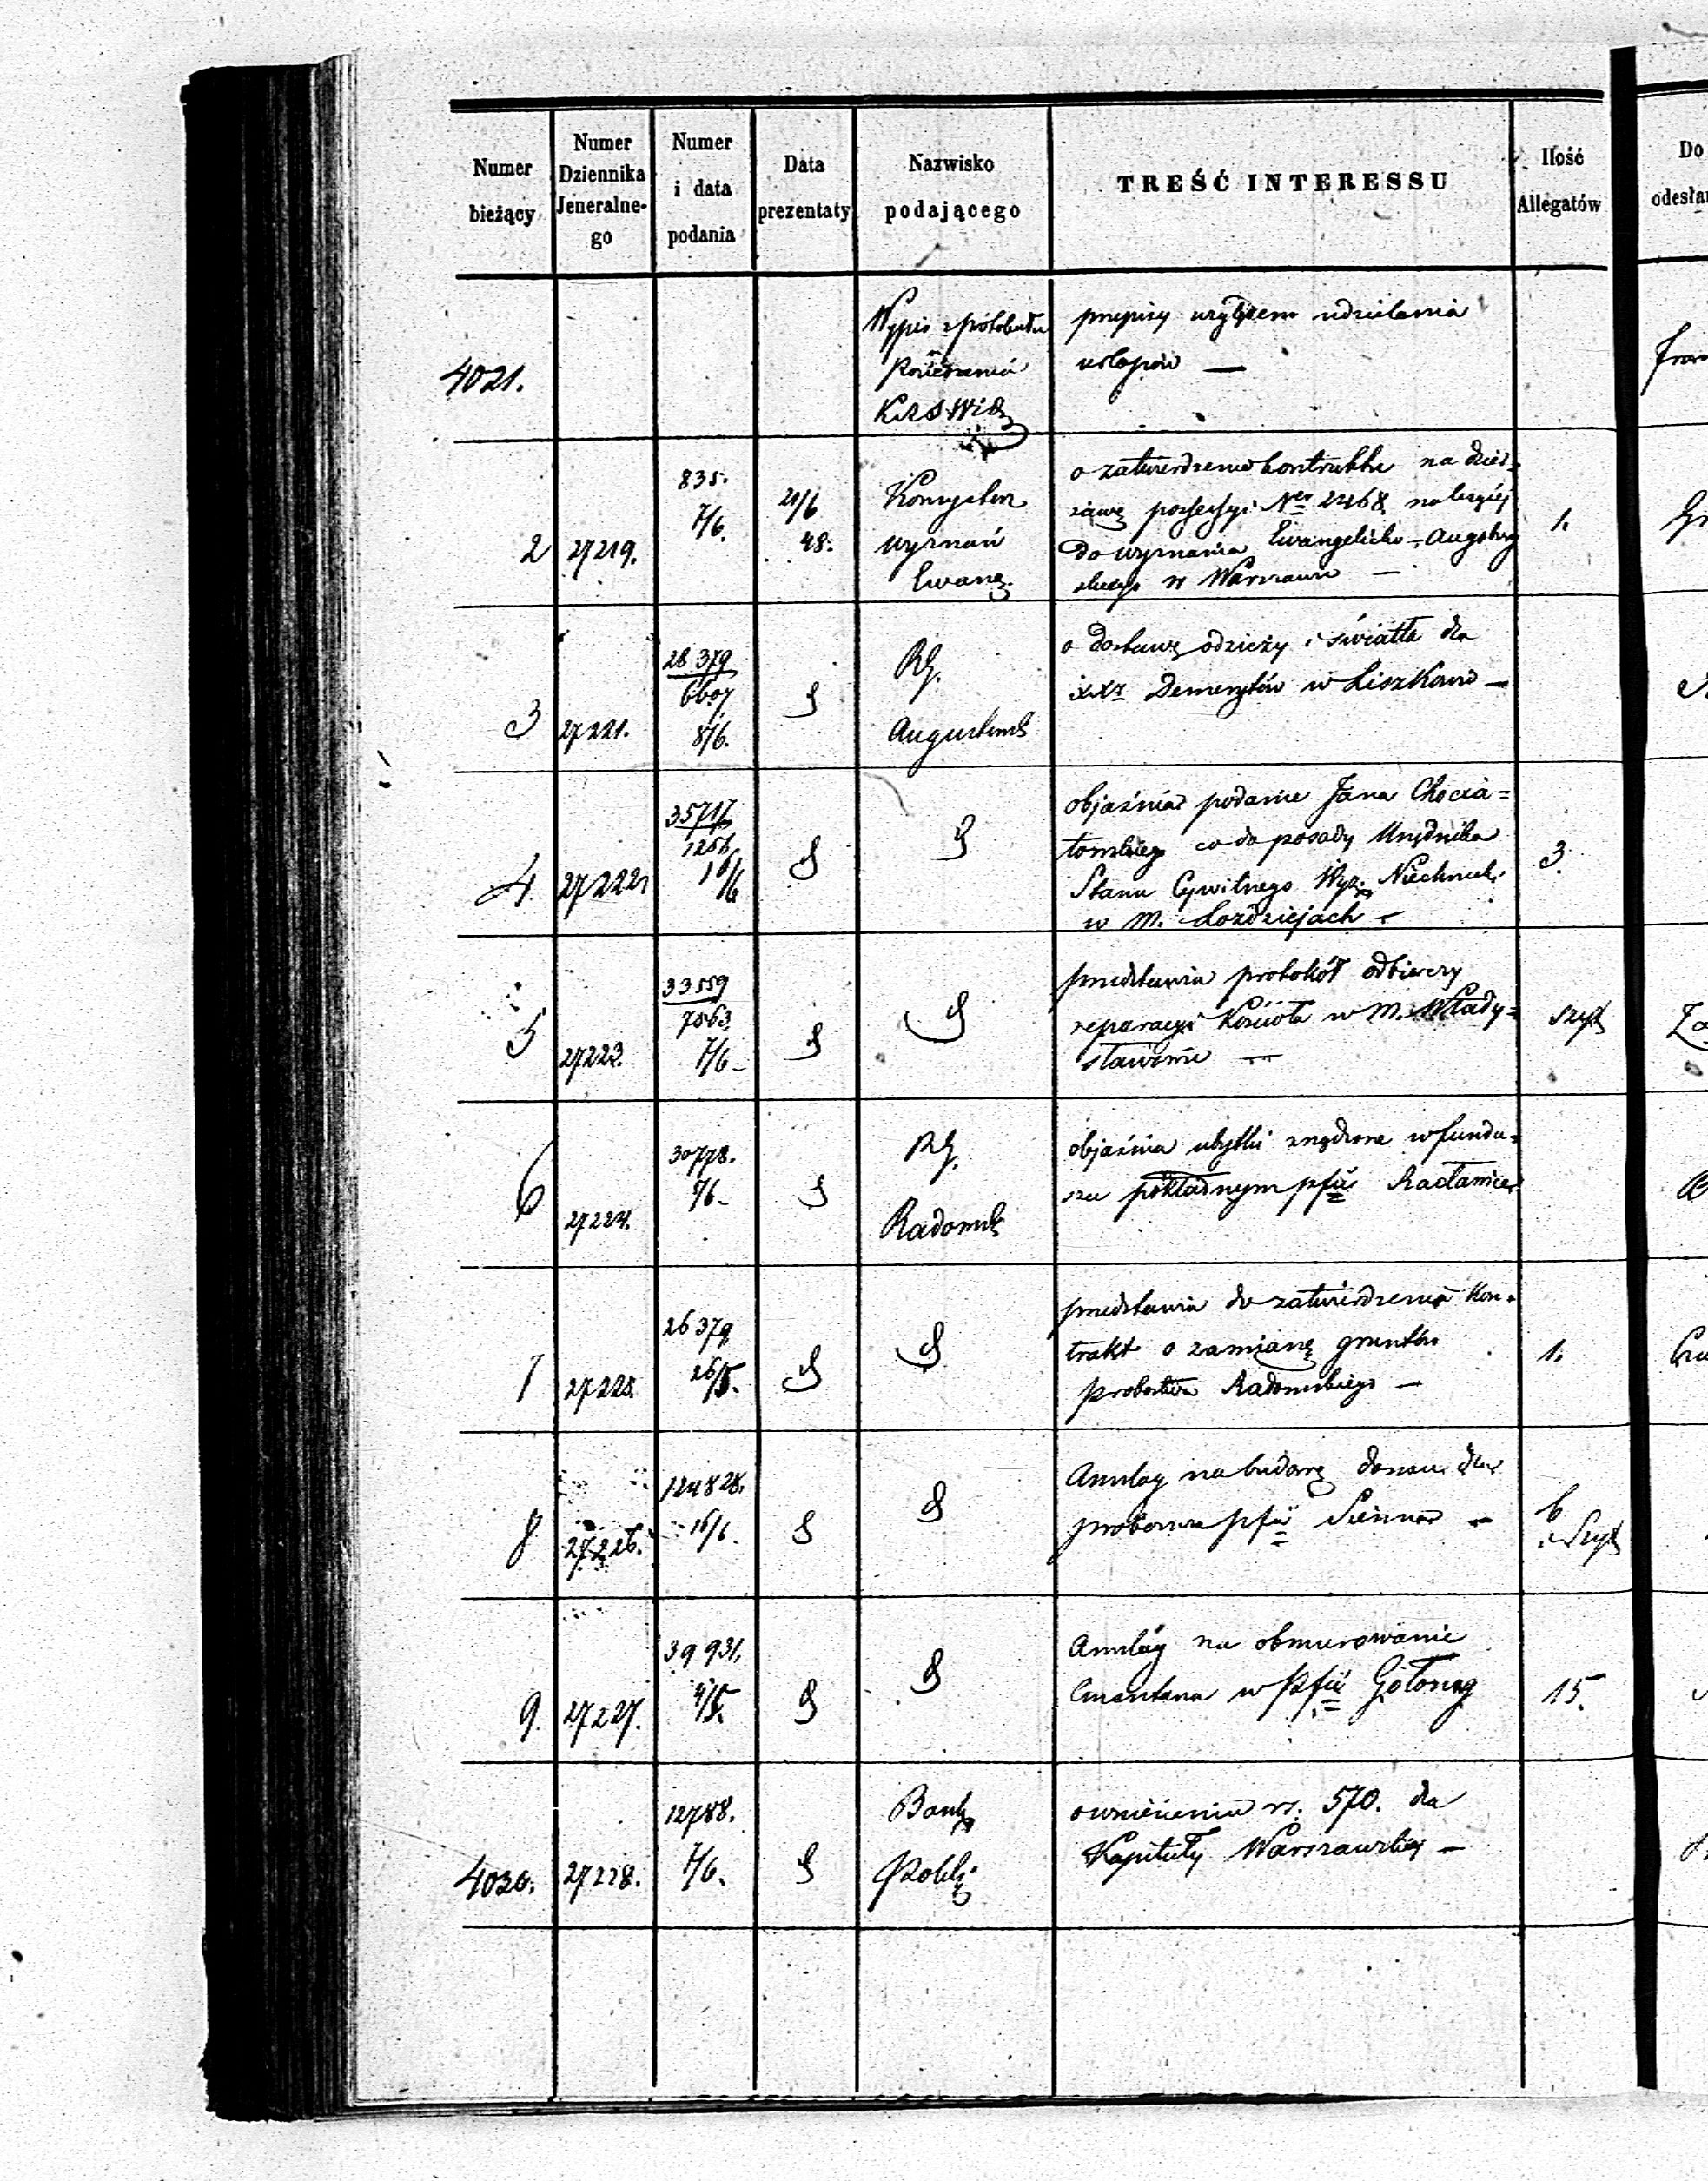 Numer bieżący
Numer Dziennika Jeneralnego
Numer i data podania
Data prezentaty
Nazwisko podającego
TREŚĆ INTERESSU
Ilość Allegatów
Do
4021.
Wypis z protokułu
Posiedzenia
przepisy względem udzielenia
urlopów —
2
27219.
835.
7/6.
21/6
48.
Konsystorz
wyznań
Ewang.
o zatwierdzenie kontraktu na dzier-
żawę possessyi Nro 2246 8 należącej
do wyznania Ewangelicko-Augsburg
skiego w Warszawie —
1.
3
27221.
28379
6607
8/6.
RG.
Augustowsk
o dostawę odzieży i światła dla
XX Demerytów w Liszkowie —
4
27222
35717
1256
16/6
objaśnia podanie Jana Chocia=
tomskiego co do posady Urzędnika
Stanu Cywilnego Wyz. Niechrześ.
w m. Łoździejach —
3.
5
27223.
33559
7563.
7/6 -
przedstawia protokół odbiorczy
reparacyi Kościoła w m. Włady=
sławowie —
szyt
6
27224.
30778.
7/6 -
RG.
Radomsk
objaśnia ubytki zrządzone w fundu=
szu pokładnym pfii Racławice
7
27225.
26379
26/5.
przedstawia do zatwierdzenia kon-
trakt o zamianę gruntów
probostwa Radomskiego —
1.
8
27226.
124828.
16/6.
Anszlag na budowę domu dla
proboszcza pfii Sienno —
6
i szyt
9.
27227.
39931.
4/5.
Anszlag na obmurowanie
Cmentarza w pfii Gołonog
15.
4030.
27228.
12788.
7/6.
Bank
Polski
o wniesieniu rs. 570. dla
Kapituły Warszawskiej —